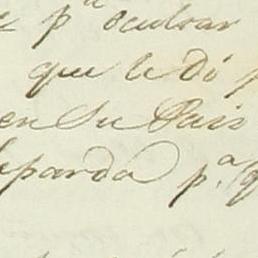 pª ocultar
que le dí
en Su Pais
parda p.ª q